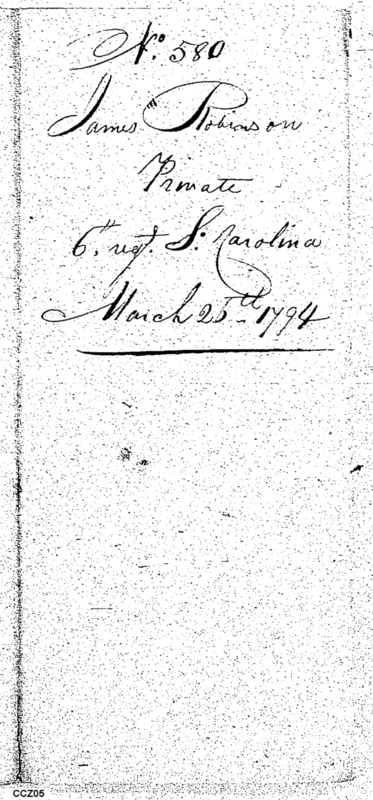 No. 580
James Robinson
Private
6th regt. So. Carolina
March 25th 1794
CCZ05